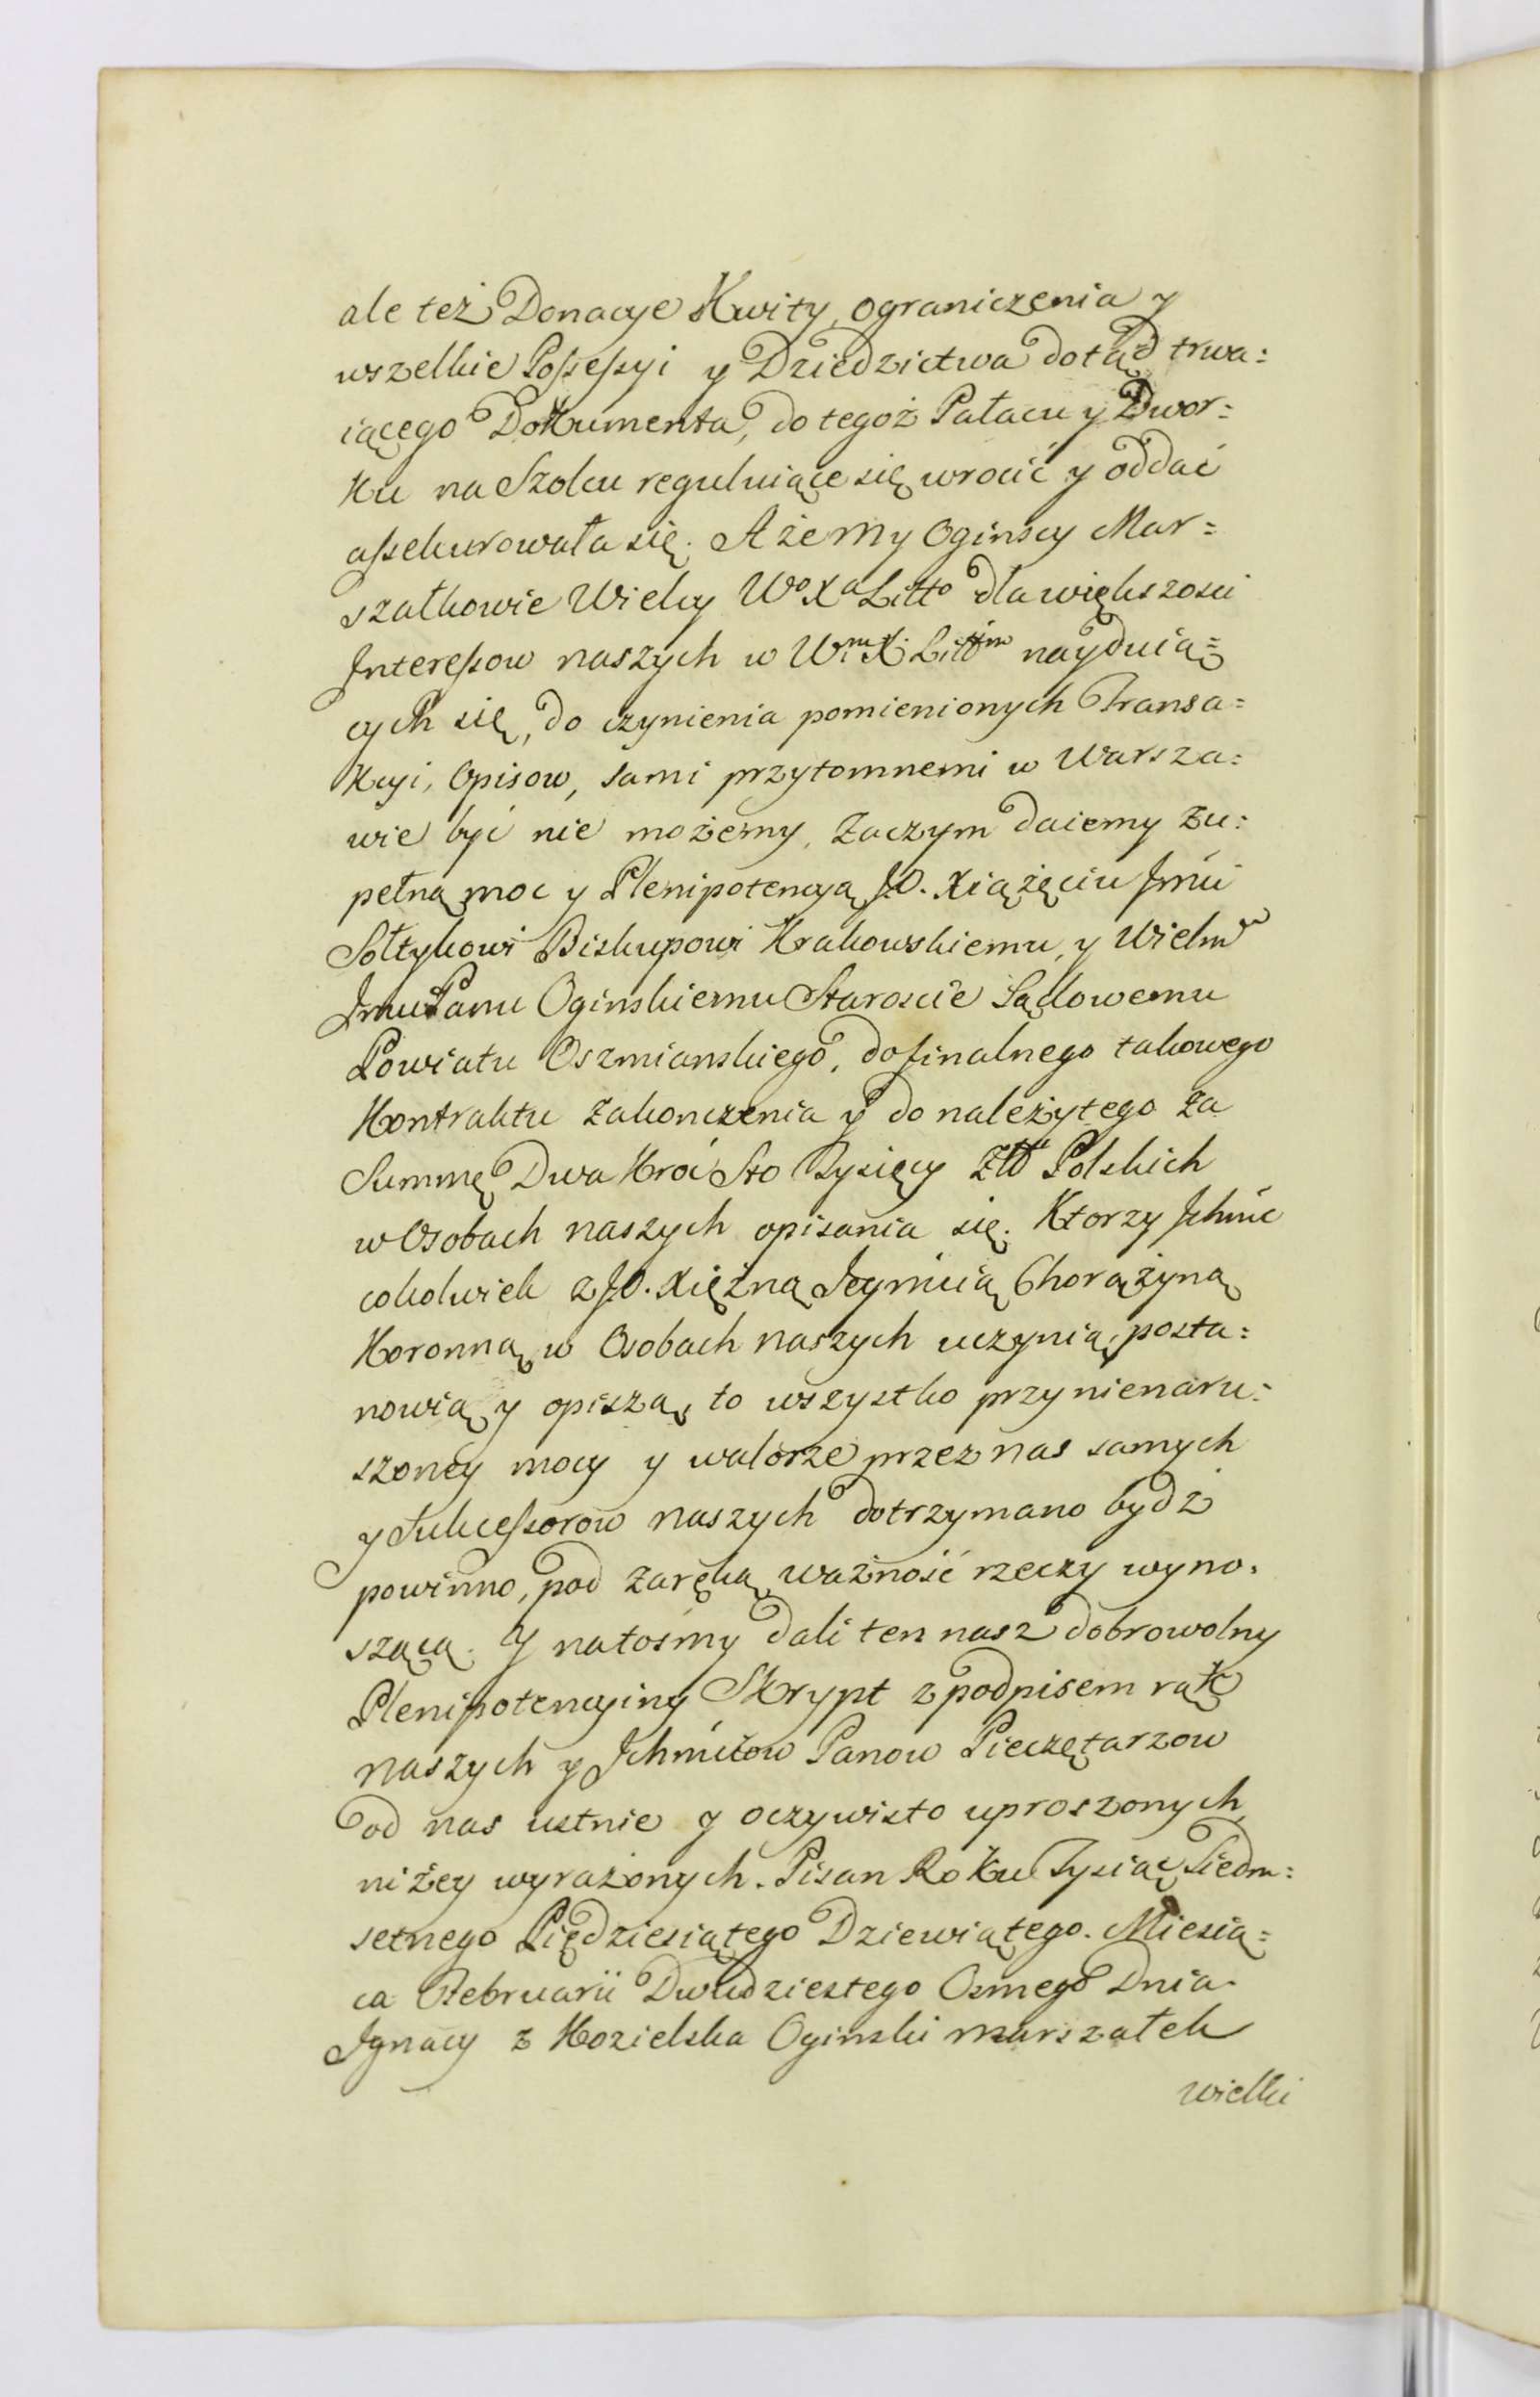 ale też Donacye Kwity, Ograniczenia y
wszelkie Possessyi y Dziedzictwa dotąd trwa=
iącego Dokumenta, do tegoż Pałacu y Dwor=
ku na Szolcu reguluiące się wrocić y oddać
assekurowała się. A że My Oginscy Mar=
szałkowie Wielcy Wº Xª Littº dla większosci
Interessow naszych w Wᵐ X. Littᵐ nayduią=
cych się, do czynienia pomienionych Transa=
kcyi, Opisow, sami przytomnemi w Warsza=
wie być nie możemy, Zaczym daiemy zu=
pełną moc y Plenipotencyą J.O. Xiążęciu Jmći
Sołtykowi Biskupowi Krakowskiemu, y Wielmᵘ
Jmu Panu Oginskiemu Staroscie Sądowemu
Powiatu Oszmianskiego, do finalnego takowego
Kontraktu zakonczenia y do należytego za
Summę Dwa Kroć Sto Tysięcy Złł Polskich
w Osobach naszych opisania się. Ktorzy Ichmć
cokolwiek z J.O. Xiężną Jeymćią Chorążyną
Koronną w Osobach naszych uczynią, posta=
nowią y opiszą, to wszystko przy nienaru=
szoney mocy y walorze przez nas samych
y Sukcessorow naszych dotrzymano bydź
powinno, pod zaręką ważność rzeczy wyno=
szącą. Y na tośmy dali ten nasz dobrowolny
Plenipotencyiny Skrypt z podpisem rąk
naszych y Ichmćiow Panow Pieczętarzow
od nas ustnie y oczywisto uproszonych,
niżey wyrażonych. Pisan Roku Tysiąc Siedm=
setnego Pięдziesiątego Dziewiątego. Miesią=
ca Februarii Dwudziestego Osmego Dnia.
Ignacy z Kozielska Oginski marszałek
wielki